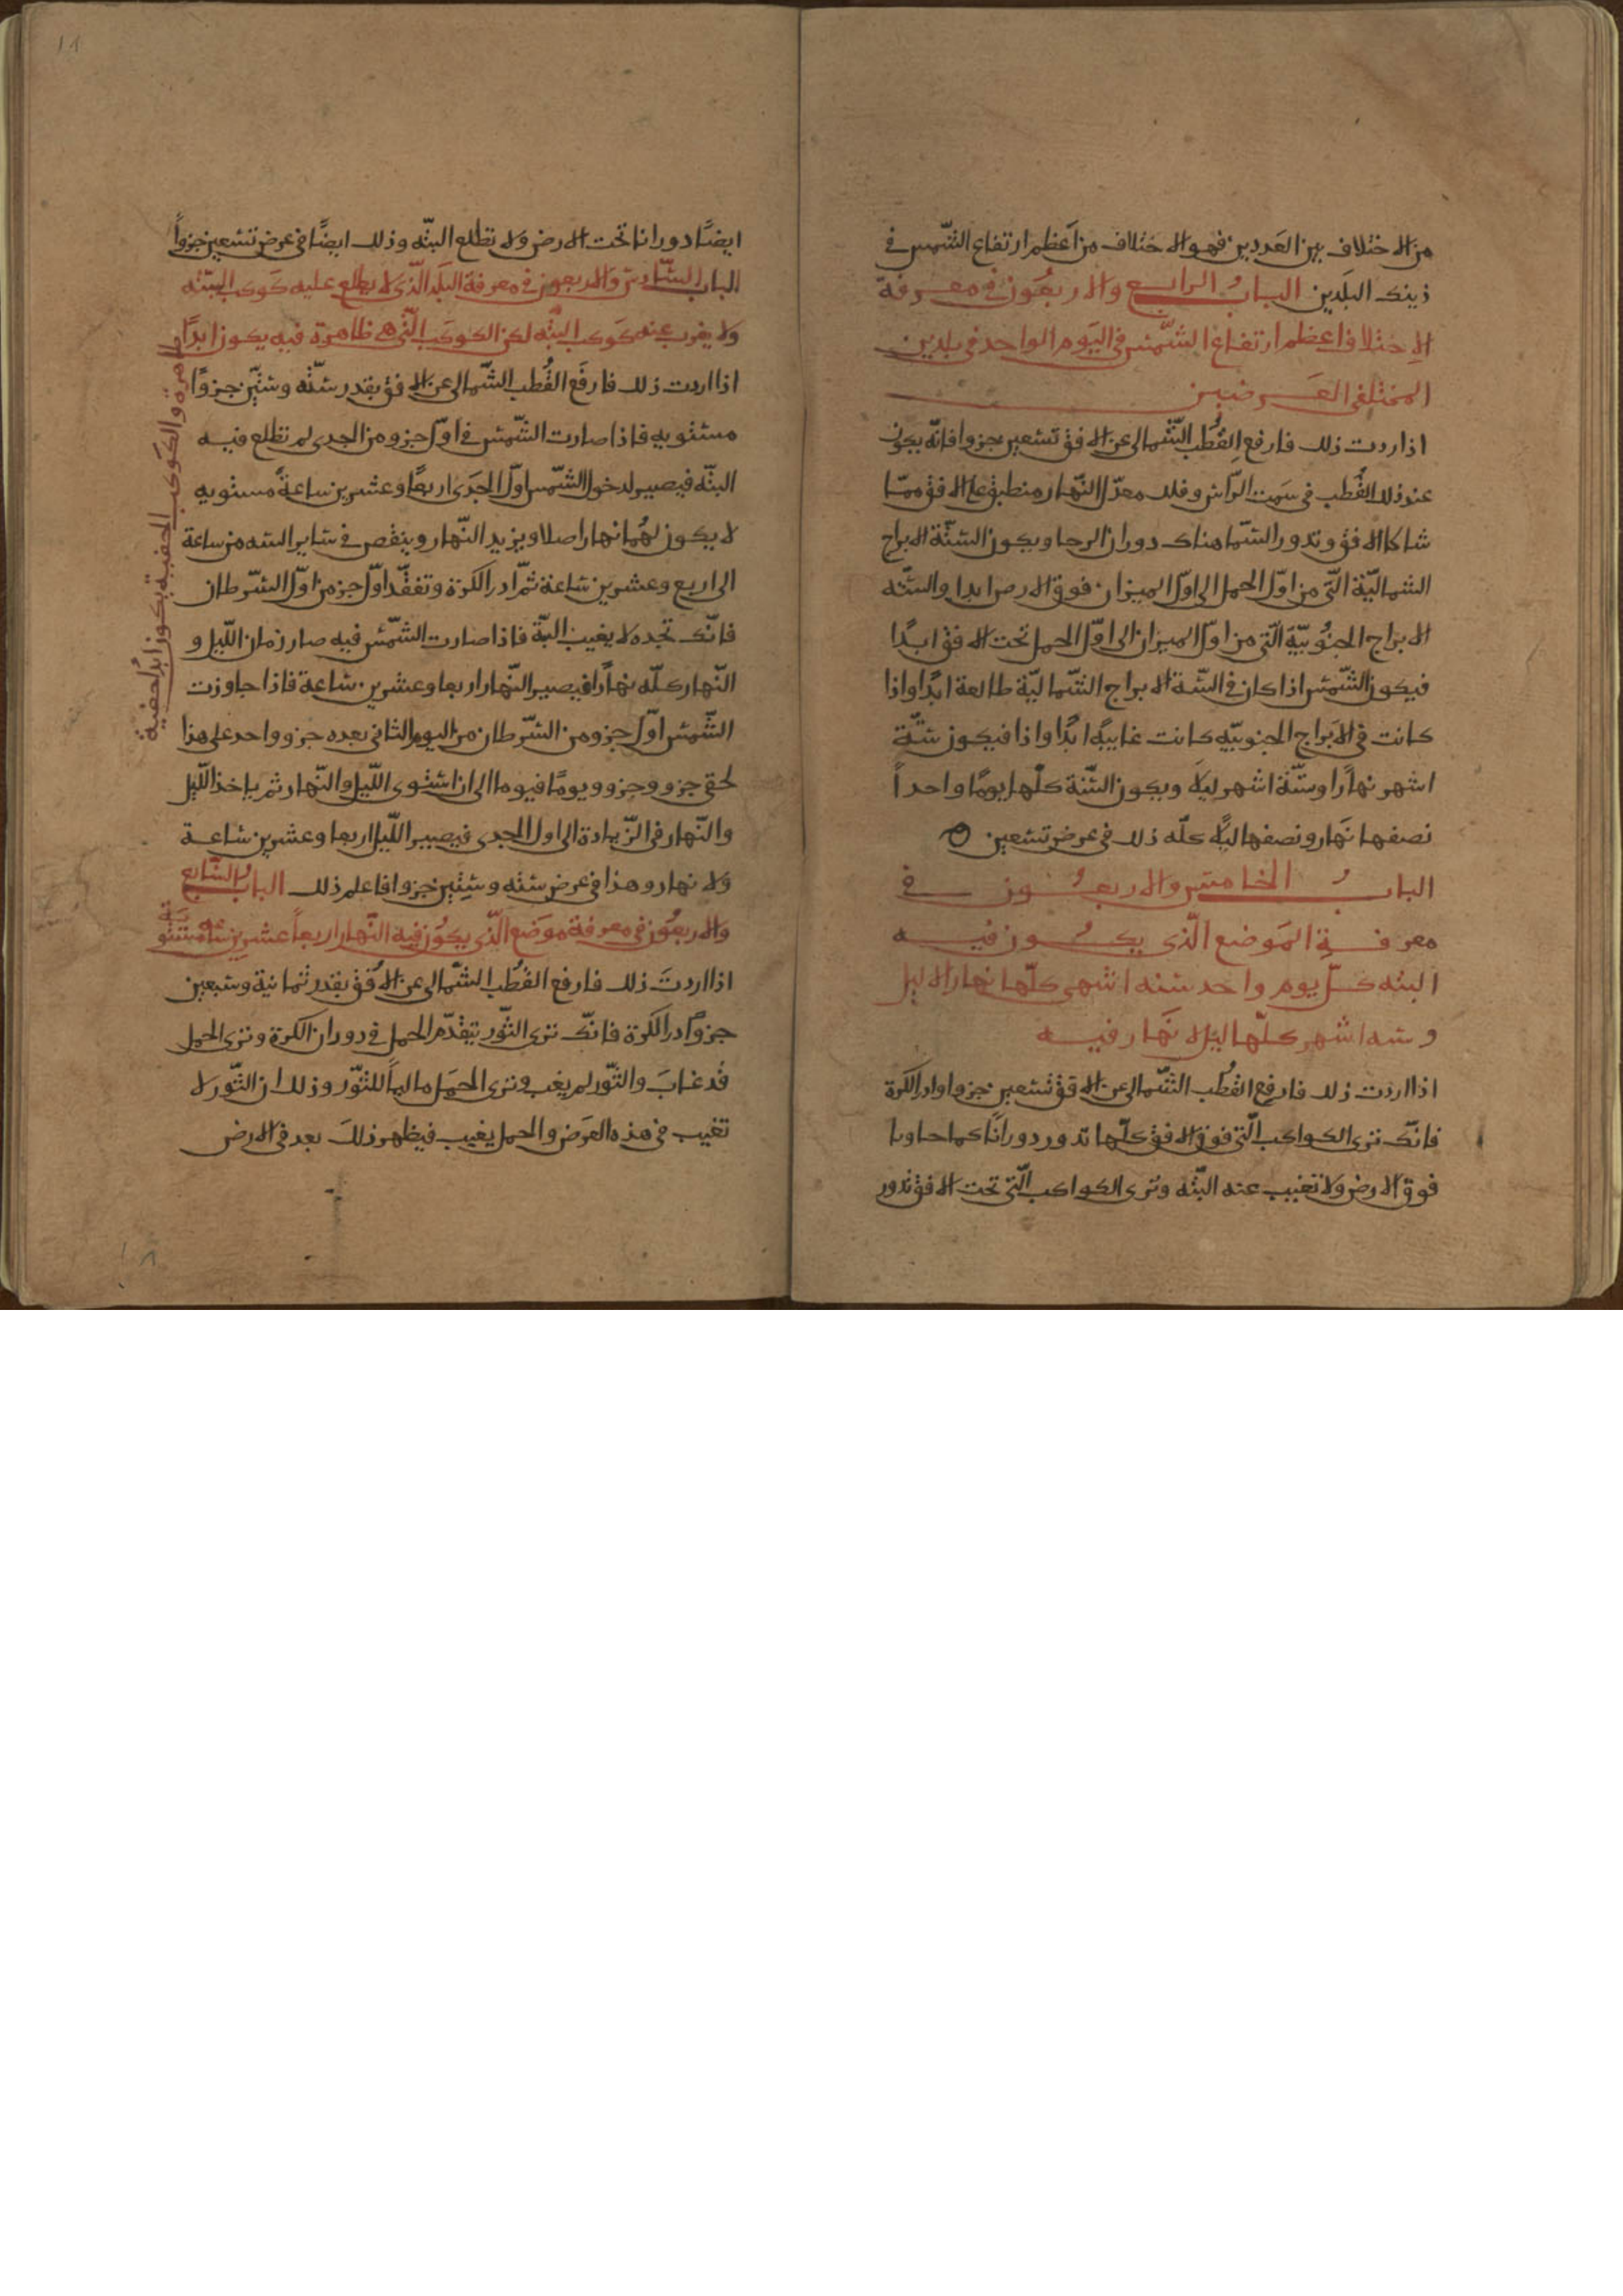 من الاختلاف بين العددين فهو الاختلاف من اعظم ارتفاع الشّمس فى
ذينك البلدين الباب الرابع والاربعون فى معرفة
الاختلاف اعظم ارتفاع الشّمس فى اليوم الواحد فى بلدين
المختلفى العرضين
اذا اردت ذلك فارفع القُطب الشّمالى عن الافق تسعين جزوا فانّه يكون
عند ذلك القُطب فى سَمت الرّاس وفلك معدّل النّهار منطبق على الافق ممّا
الافق وتدور السّما هناك دوران الرحا ويكون الستّة الابراج
الشماليّة الّتى من اوّل الحمل الى اوّل الميزان فوق الارض ابدا والستّه
الابراج الجنُوبيّة الّتى من اوّل الميزان الى اوّل الحمل تحت الافق ابدًا
فيكون الشّمس اذا كان فى الستّة الابراج الشّماليّة طالعة ابدًا واذا
كانت فى الابراج الجنوبيّه كانت غايبةً ابدًا واذا فيكون ستّة
اشهر نهارًا وستّة اشهر ليلا ويكون السّنة كلّها يومًا واحداً
نصفها نَهار ونصفها ليلًا كلّه ذلك فى عرض تسعين
الباب الخامس والاربعُون فى
معرفة المَوضع الّذى يكُون فيه
البته كلّ يوم واحد ستة اشهر كلّها نهارا لا ليل
وسته اشهر كلّها ليل لا نَهار فيه
اذا اردت ذلك فارفع القُطب الشّمالى عن الافق تسعين جزوا وادر الكرة
فانّك ترى الكواكب الّتى فوق الافق كلّها تدور دورانًا كما
فوق الارض ولا تغيب عنه البتّه وترى الكواكب الّتى تحت الافق تدور
ايضًا دورانا تحت الارض ولا تطلع البتّه وذلك ايضًا فى عرض تسعين جزواً
الباب السّادس والاربعون فى معرفة البَلَد الّذى لا يطلع عليه كوكب البتّه
ولا يغرب عنه كوكب البتّه لكن الكوكب الّتى هى ظاهرة فيه يكون ابدًا
ظاهرة والكوكب الخفية يكون ابدًا خفية
اذا اردت ذلك فارفَع القُطب الشّمالى عن الافق بقدر ستّه وستّين جزوًا
مستويه فاذا صارت الشّمس فى اوّل جزو من الجدى لم تطلع فيه
البتّه فيصير لدخول الشّمس اوّل الجَدى اربعًا وعشرين ساعةً مستويه
لا يكون لهُما نهار اصلا ويزيد النّهار وينقص فى ساير السنه من ساعة
الى اربع وعشرين ساعة ثمّ ادر الكرة وتفقّد اوّل جز من اوّل السّرطان
فانّك تجده لا يغيب البتة فاذا صارت الشّمس فيه صار زمان اللّيل و
النّهار كلّه نهارًا فيصير النّهار اربعا وعشرين ساعة فاذا جاوزت
الشّمس اوّل جزو من السّرطان من اليوم الثانى بعده جزو واحد على هذا
لحق جزو وجزو ويومًا فيوما الى ان استوى اللّيل والنّهار ثم ياخذ اللّيل
والنّهار فى الزّيادة الى اول الجدى فيصير اللّيل اربعا وعشرين ساعة
ولا نهار وهذا فى عرض سته وستّين جزوا فاعلم ذلك الباب السّابع
والاربعُون فى معرفة موَضع الّذى يكوُن فيه النّهار اربعاً عشرين ساعة مستوية
اذا اردتَ ذلك فارفع القُطب الشّمالى عن الافُق بقدر ثمانية وسبعين
جزوًا ادر الكرة فانّك ترى الثّور تيقدّم الحمل فى دوران الكرة وترى الحمل
قد غابَ والثّور لم يغب وترى الحمَل ماليًا للثوّر وذلك ان الثّور لا
تغيب فى هذه العرَض والحمل يغيب فيظهر ذلكَ بعد فى الارض